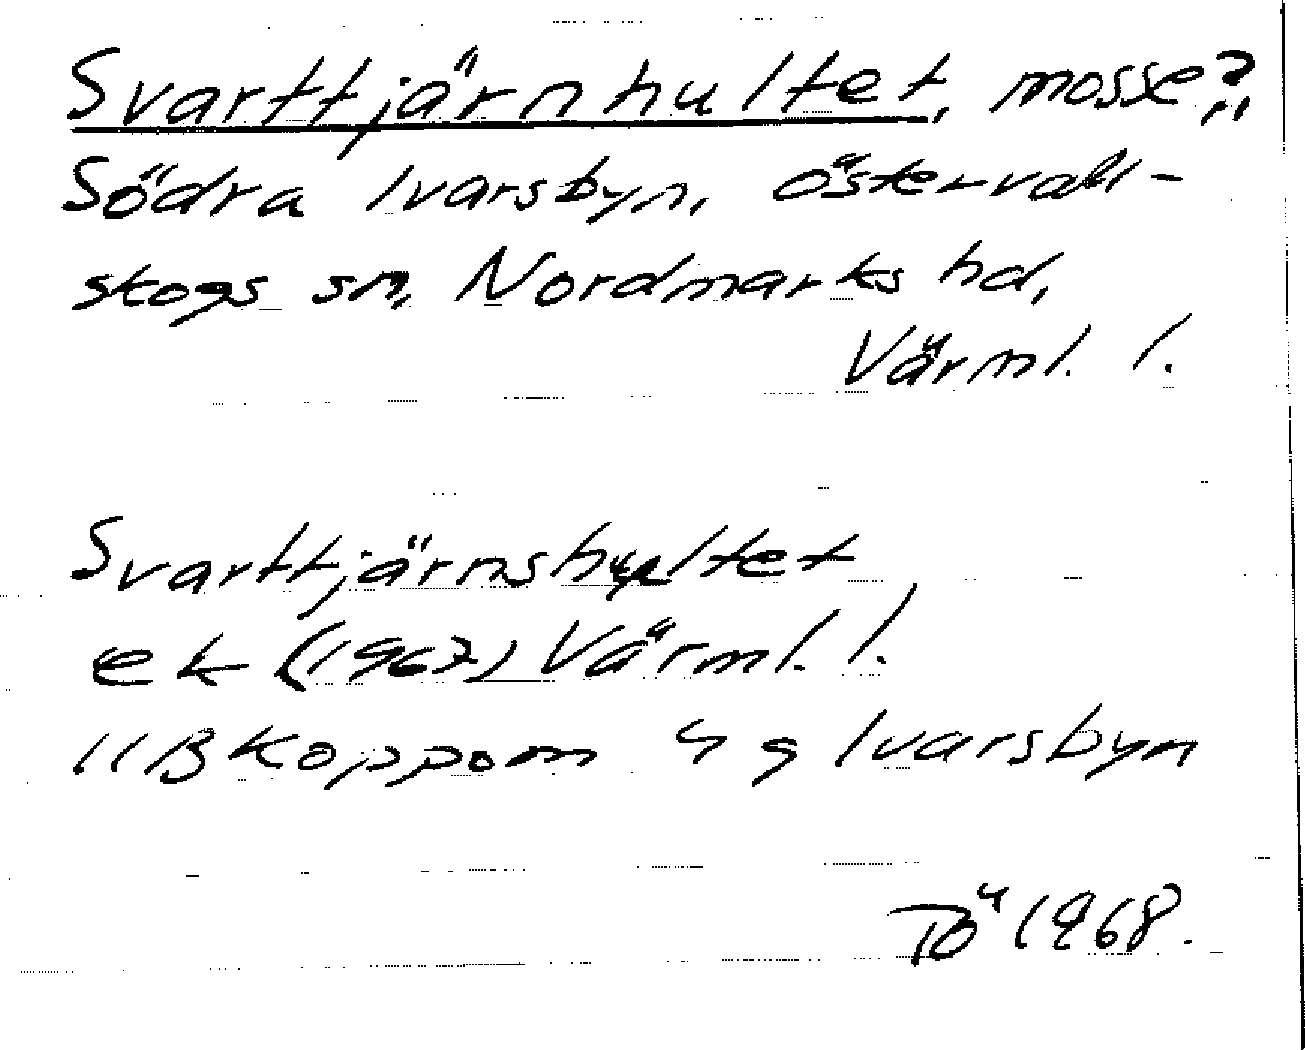 Svarttjärnhultet, mosse?,
Södra Ivarsbyn, Östervall-
skogs sn, Nordmarks hd,
Värml. l.
Svarttjärnshultet
ek (1967) Värml. l.
11B Koppom 4 g Ivarsbyn
TÖ 1968.